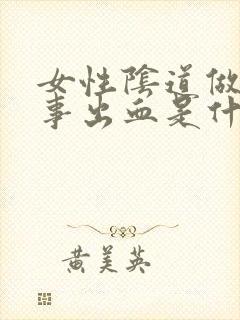 女性陰道做
事出血是什
黄美英